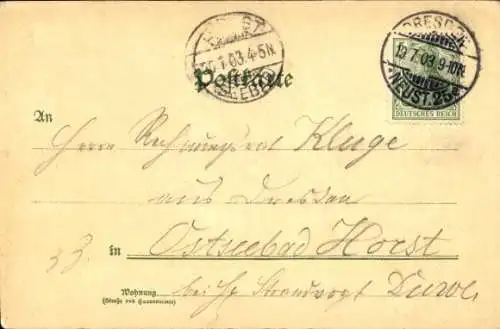 DRESDEN
10.7.03 9-10N.
NEUST. 25
HORST
7.03.4-5N
DEUTSCHES REICH
Postkarte
An
Herrn Rechnungsrat Kluge
aus Dresden
33. in Ostseebad Horst
Wohnung
(Straße und Hausnummer)
bei Hr. Strandvogt